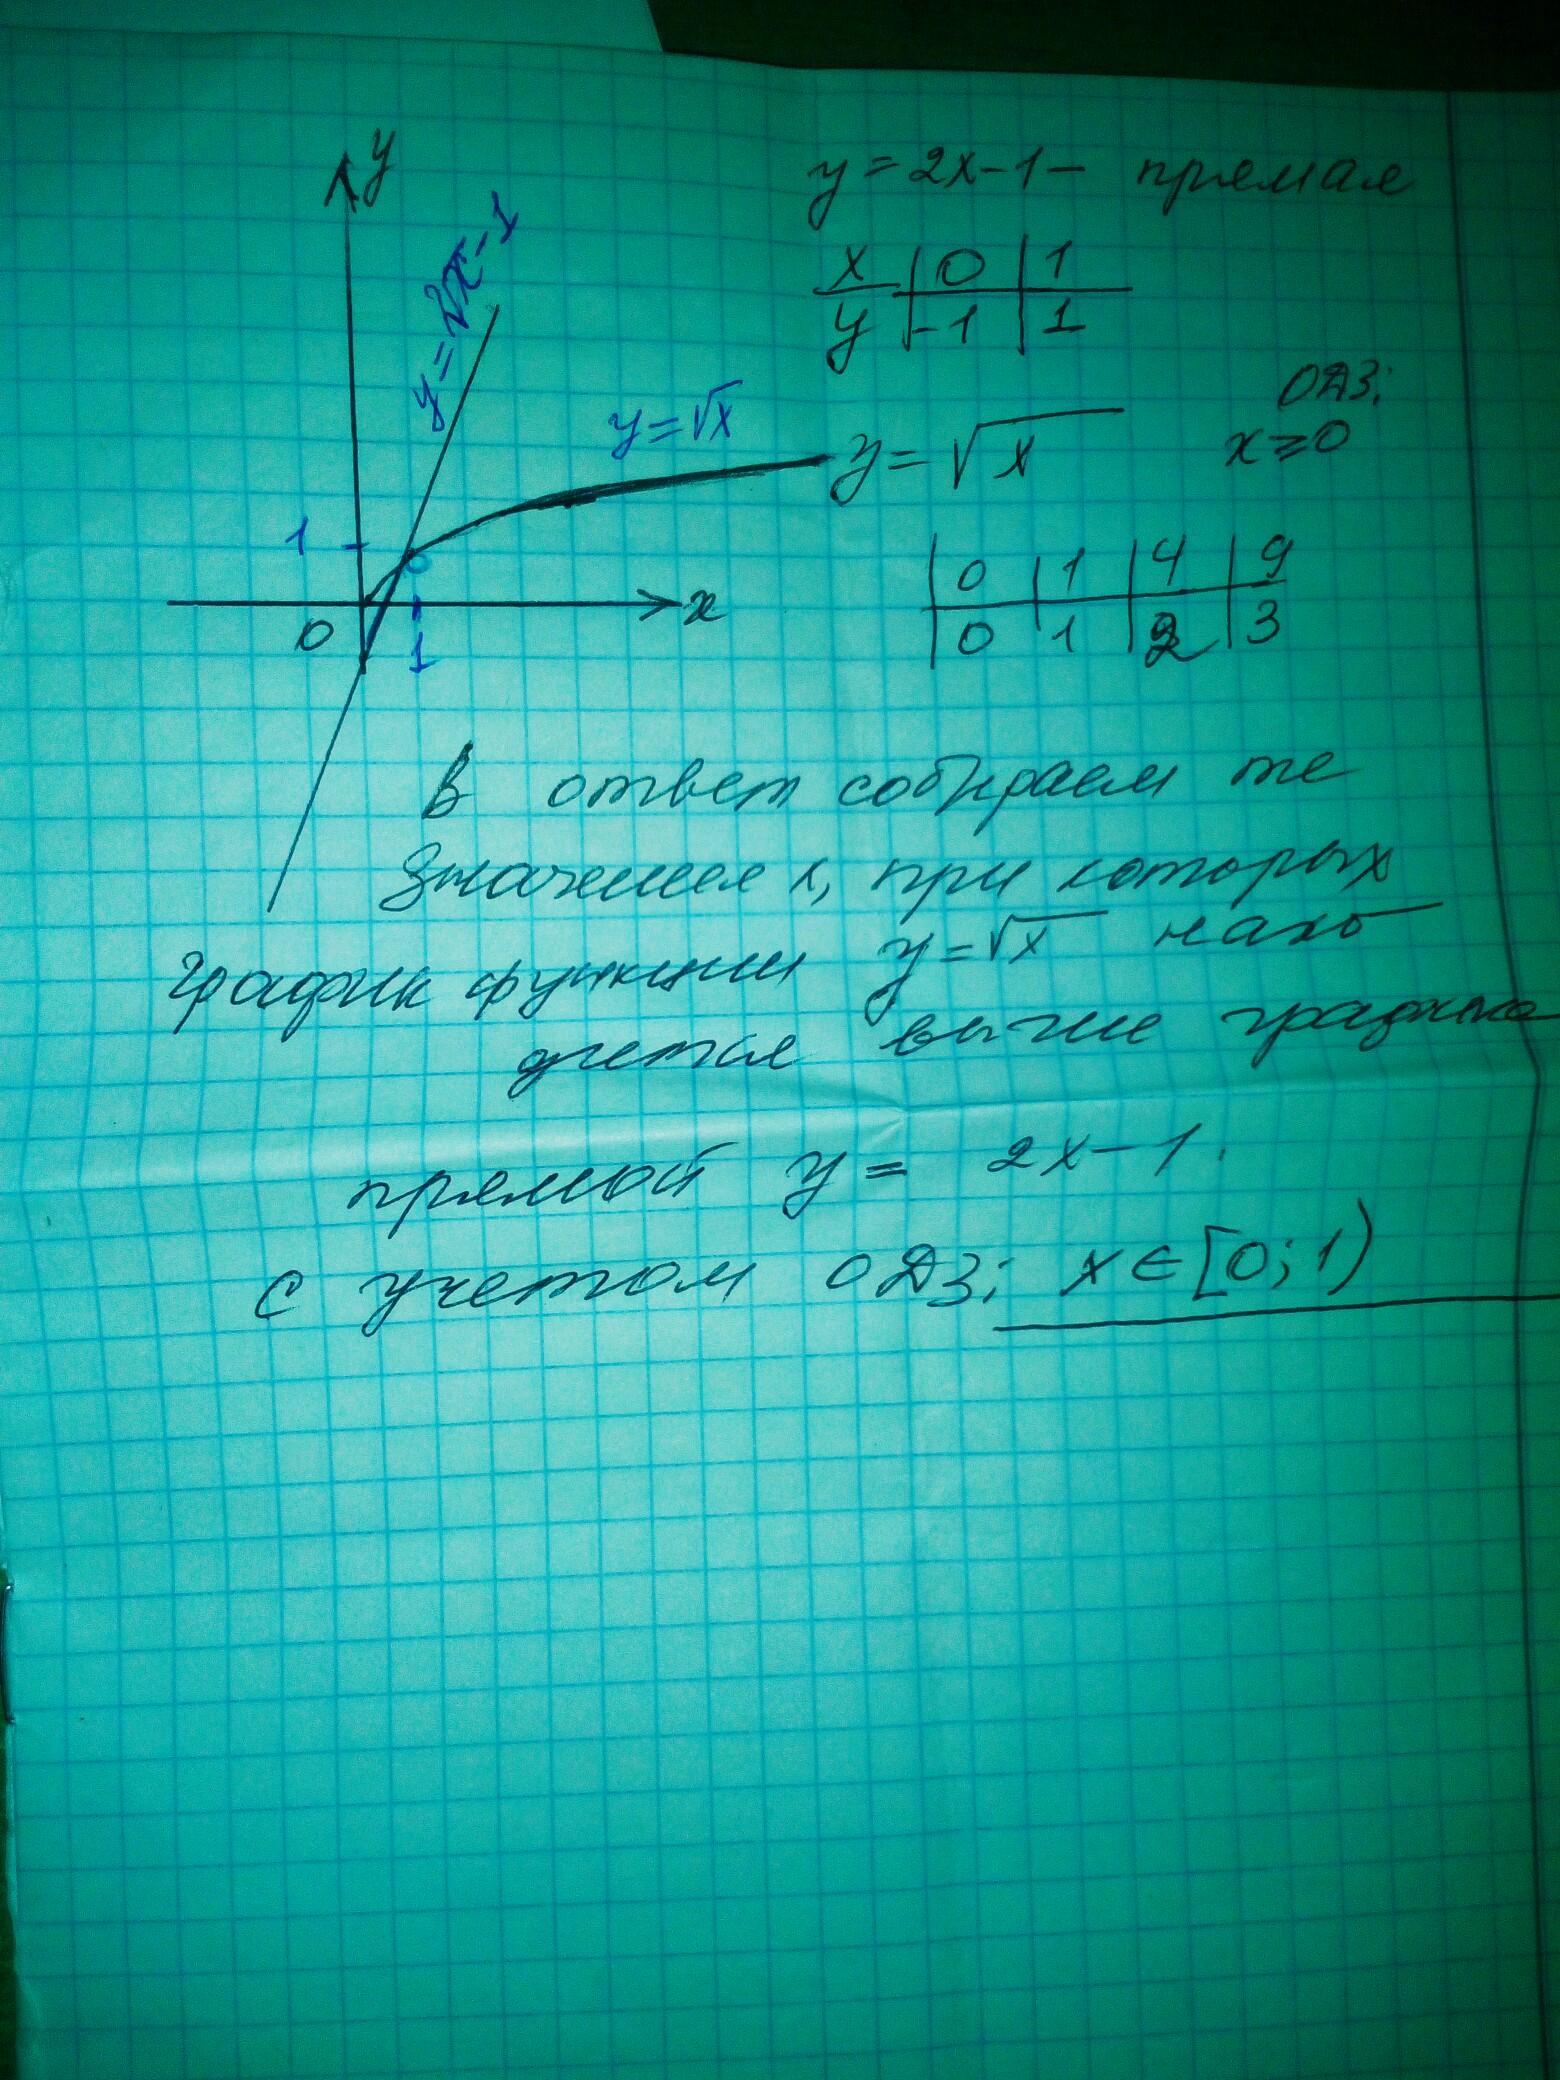 y
y = 2x-1
y = √x
1
0
1
x
y = 2x-1 - прямая
x | 0 | 1
y | -1 | 1
ОДЗ:
y = √x x ≥ 0
0 | 1 | 4 | 9
0 | 1 | 2 | 3
В ответ собираем те
значения x, при которых
график функции y = √x нахо
дится выше графика
прямой y = 2x-1.
с учетом ОДЗ: x ∈ [0; 1)